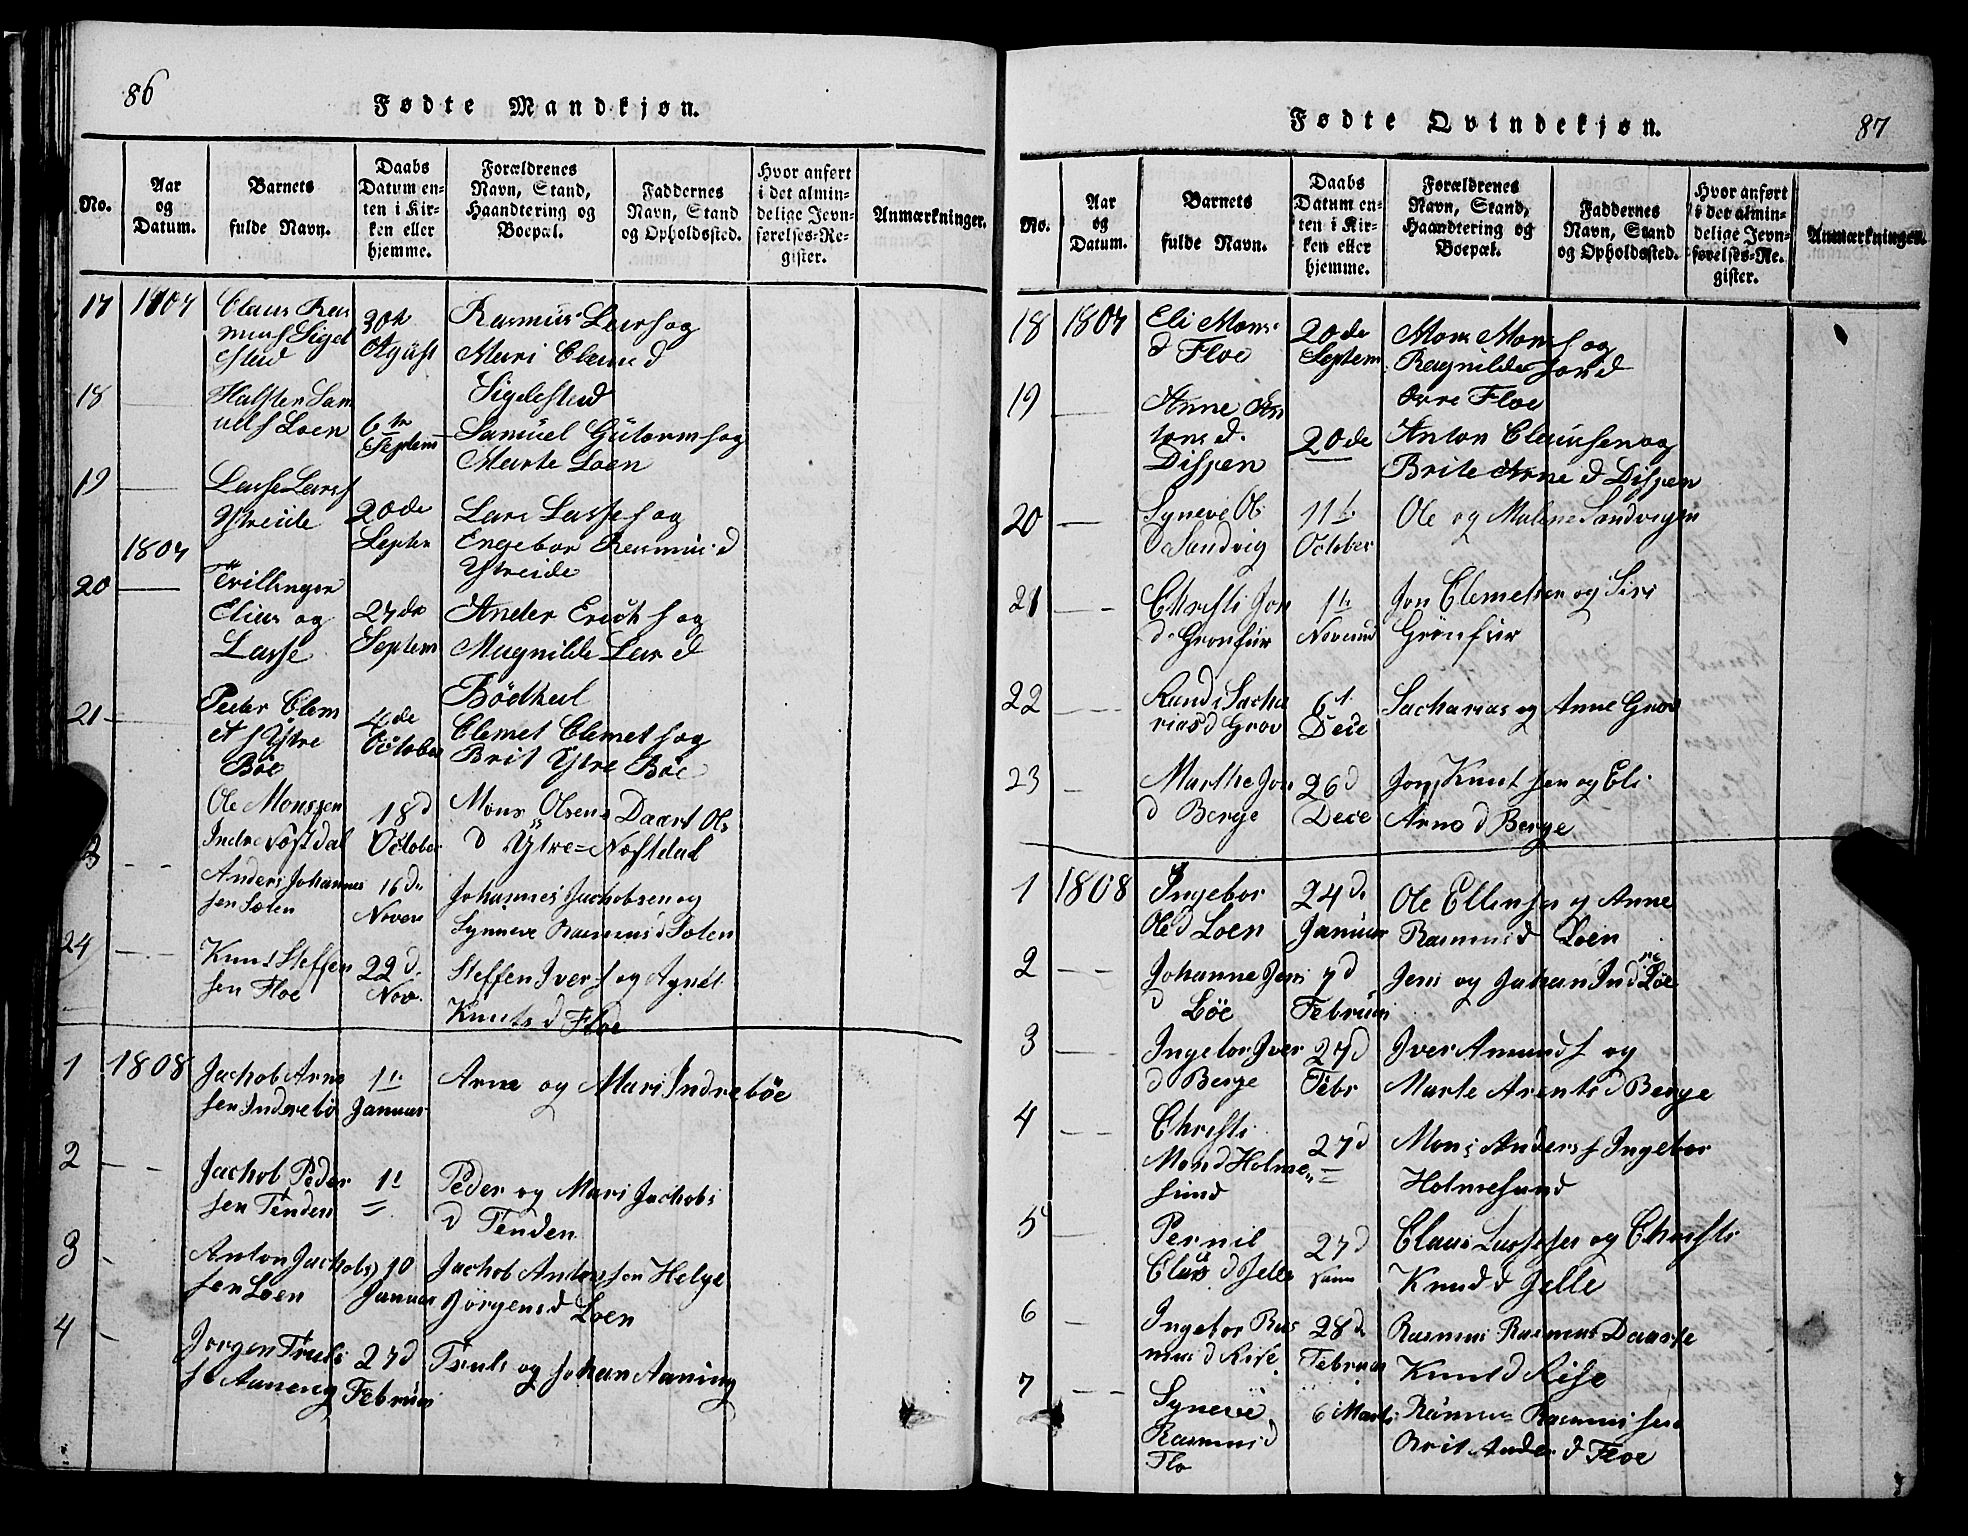 86
Fødte Mandkjøn.
No.
Aar
og
Datum.
Barnets
fulde Navn.
Daabs
Datum en-
ten i Kir-
ken eller
hjemme.
Forældrenes
Navn, Stand,
Haandtering og
Boepæl.
Faddernes
Navn, Stand
og Opholdssted.
Hvor anført
i det almin-
delige Jevn-
førelses-Re-
gister.
Anmærkninger.
17 1807 Claus Ras
mus f Sigel
stad
30te
Agüst
Rasmus Lars f og
Mari Claus d
Sigelstad
18
Halsten Sam
uels Loen
6te
Septem
Samuel Gütorms f og
Marte Loen
19
Lasse Lars f
Ytreide
20de
Septem
Lars Lasse f og
Engebor Rasmus d
Ytreide
1807
20
Tvillinger
Elias og
Lasse
27de
Septem
Ander Erick f og
Magnilde Lar d
Bödhed
21
Peder Clem
et f Ytre
Böe
4de
October
Clemet Clemet f og
Brit Ytre Böe
Ole Monssen
Indre Nöstdal
18d
October
Mons Olsen Daart Ols
d Ytre Nöstdal
Anders Johannes
sen Solen
16d
Novem
Johannes Jachobsen og
Synneve Rasmus d Solen
24
Knut Steffen
sen Floe
22d
Nov.
Steffen Iver f og Agnet
Knuts d Floe
1 1808 Jachob Arne
sen Indrebö
1te
Januar
Arne og Mari Indreböe
2
Jachob Peder
sen Tenden
1t
Peder og Mari Jachobs
d Tenden
3
Anton Jachobs
sen Loen
10
Januar
Jachob Antonsen Helge
Jörgens d Loen
4
Jorgen Truls
f Aaneng
27d
Februar
Truls og Johan Aaning
87
Fødte Qvindekjøn.
No.
Aar
og
Datum.
Barnets
fulde Navn.
Daabs
Datum en-
ten i Kir-
ken eller
hjemme.
Forældrenes
Navn, Stand,
Haandtering og
Boepæl.
Faddernes
Navn, Stand
og Opholdssted.
Hvor anført
i det almin-
delige Jevn-
førelses-Re-
gister.
Anmærkninger.
18 1807 Eli Mons
d Floe
20de
Septem
Mons Mons f og
Ragnilde Jon d
Övre Floe
19
Anne An
tons d.
Dispen
20de
Anton Claussen og
Brite Arne d Dispen
20
Syneve Ol
d Sandvig
11te
October
Ole og Malene Sandvigen
21
Christi Jon
d Grönfur
1te
Novemb
Jon Clemetsen og Siri
Grönfur
22
Randi Sacha
rias d Grov
6t
Dece
Sacharias og Anne Grov
23
Marthe Jon
d Berge
26d
Dece
Jon Knut sen og Eli
Arne d Berge
1 1808 Ingebor
Ole d Loen
24d
Januar
Ole Ellinsen og Anne
Rasmus d Loen
2
Johanne Jens
d Löe
7d
Februar
Jens og Johan Indre Löe
3
Ingebor Iver
d Berge
27d
Febr
Iver Amund f og
Marte Arents d Berge
4
Christi
Mon d Holme
sund
27d
Mons Anders f Ingebor
Holmesund
5
Pernil
Claus d Jelle
27d
Claus Lassesen og Christi
Knud d Jelle
6
Ingebor Ras
mus d Rise
28d
Februar
Rasmus Rasmus Daarte
Knut d Rise
7
Syneve
Rasmus d
Flo
6 Marts
Rasmus Rasmus sen
Brit Ander d Floe